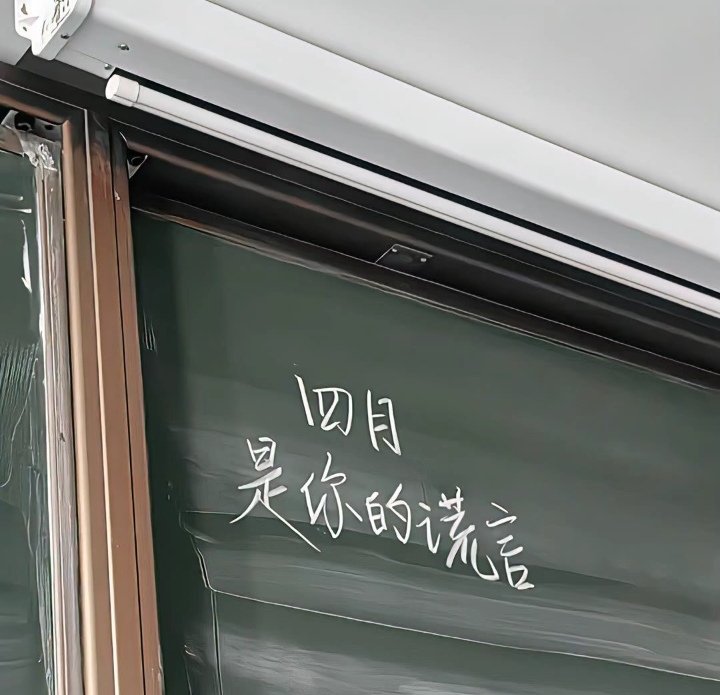 四月
是你的谎言